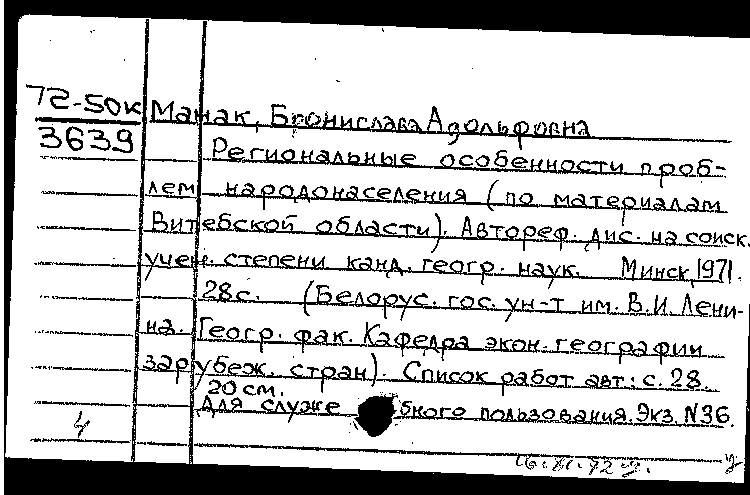 72-50к Манак, Бронислава Адольфовна
3639 Региональные особенности проб-
лем народонаселения (по материалам
Витебской области). Автореф. дис. на соиск.
учен. степени канд. геогр. наук. Минск, 1971.
28с. (Белорус. гос. ун-т им. В.И. Лени-
на. Геогр. фак. Кафедра экон. географии
зарубеж. стран). Список работ авт: с. 28.
20 см.
Для служе бного пользования. Экз. N36.